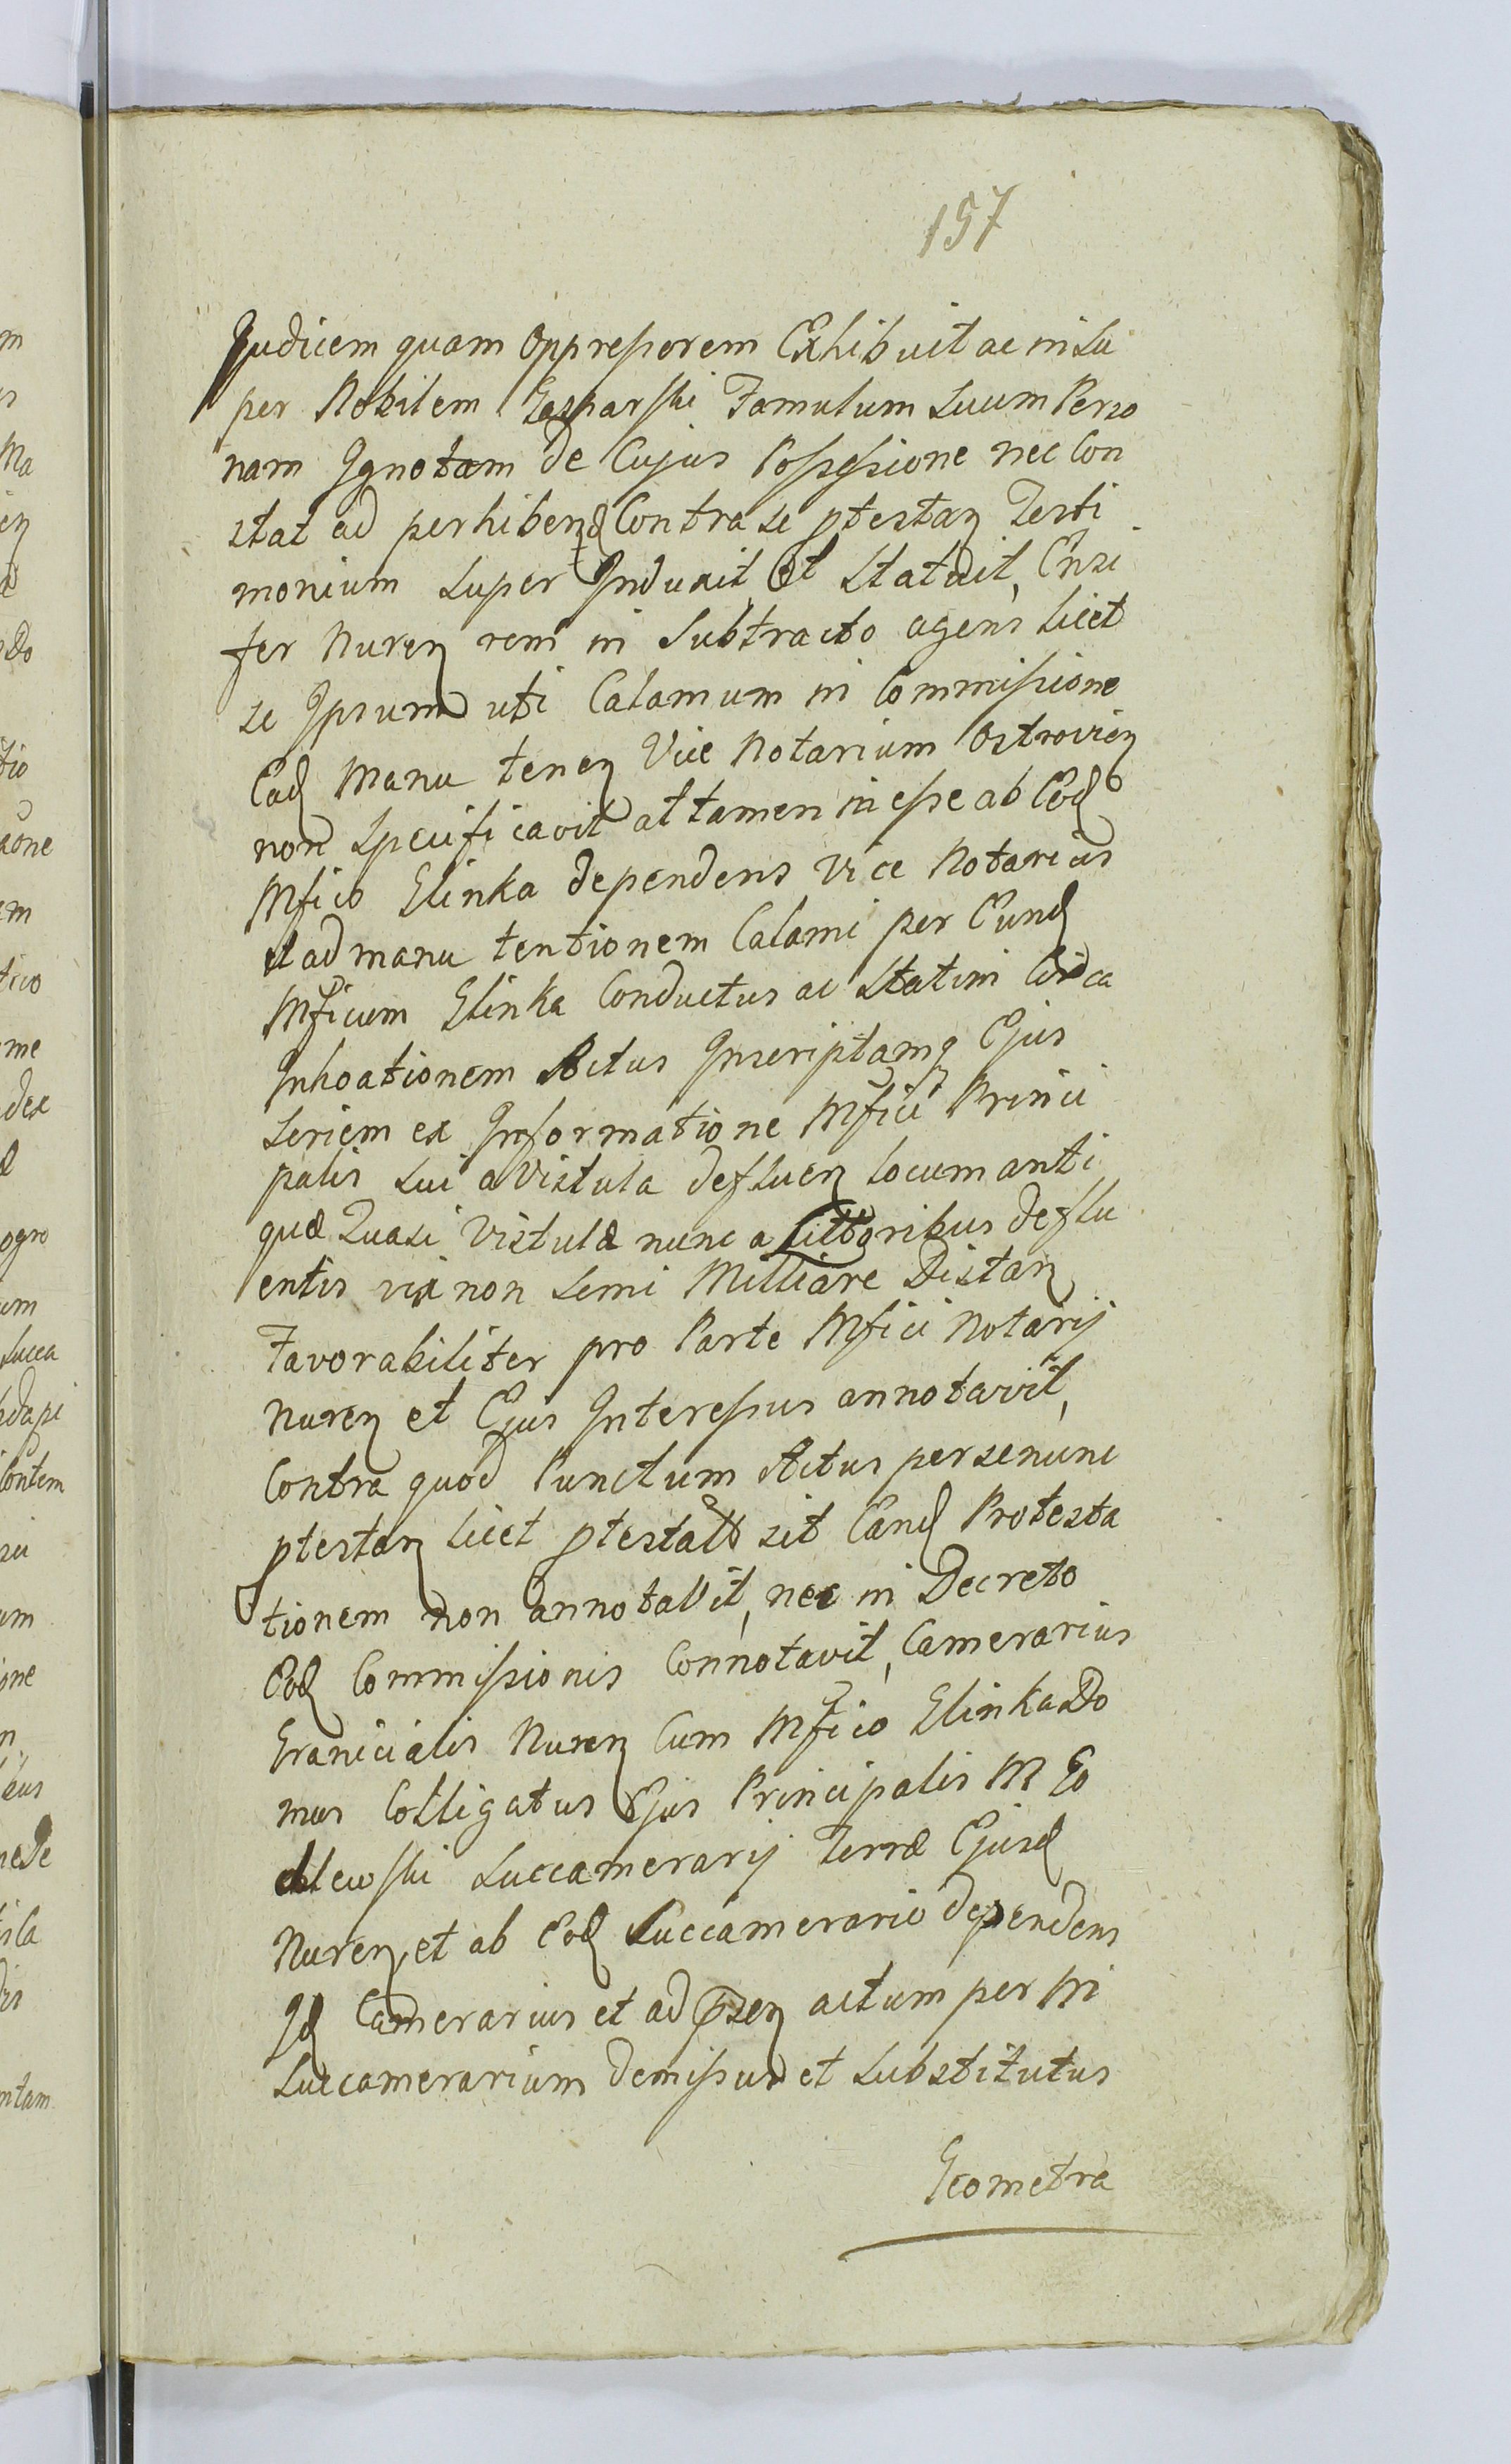 157
Judicem quam Oppressorem Exhibuit ac insu
per Nobilem Gasparski Famulum Suum Perso
nam Ignotam de Cujus Possessione nec Con
stat ad perhibend Contra se ptestan Testi
monium super Induxit Et Statuit, Ensi
fer Nuren rem in Subtracto agens licet
se Ipsum uti Calamum in Commissione
Ead Manu tenen Vice Notarium Ostrovien
non Specificavit attamen in esse ab Eod
Mfico Glinka dependens Vice Notarius
et ad manu tentionem Calami per Eund
Mficum Glinka Conductus ac Statim Circa
Inhoationem Actus Inscriptamq Ejus
Seriem ex Informatione Mfici Princi
palis Sui a Vistula defluen locum anti
quæ Quasi Vistulæ nunc a Littoribus deflu
entis vix non Semi Milliare Distan
Favorabiliter pro Parte Mfici Notarij
Nuren et Ejus Interessus annotavit,
Contra quod Punctum Actus per se nunc
ptestan licet ptestatt sit Eand Protesta
tionem non annotavit, nec in Decreto
Eod Commissionis Connotavit, Camerarius
Granicialis Nuren Cum Mfico Glinka Do
mus Colligatus Ejus Principalis M Go
dlewski Succamerarij Terræ Ejusd
Nuren et ab Eod Succamerario dependens
Id Camerarius et ad psen actum per M
Succamerarium demissus et Substitutus
Geometra